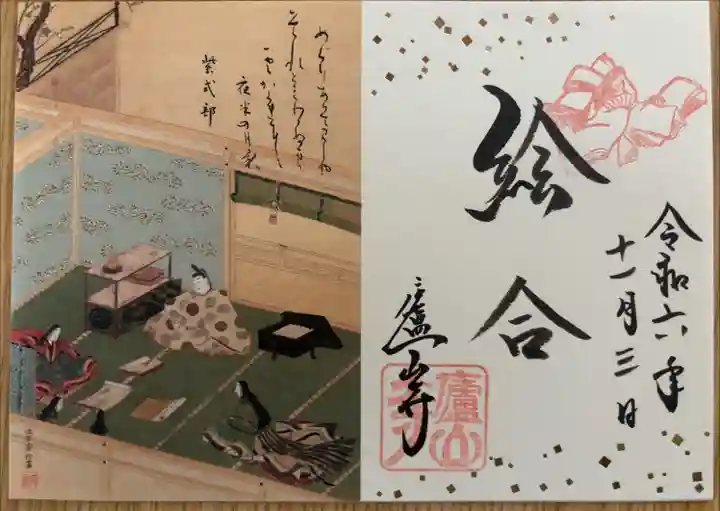 令和六年
十一月三日
絵合
廬山寺
廬山
めくりあひて見しや
それともわかぬまに
雲かくれにし
夜半の月
紫式部